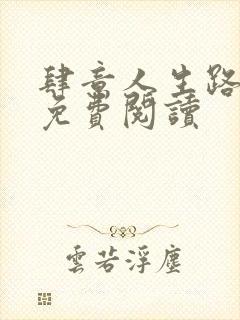 肆意人生路
免費閱讀
雲若浮塵